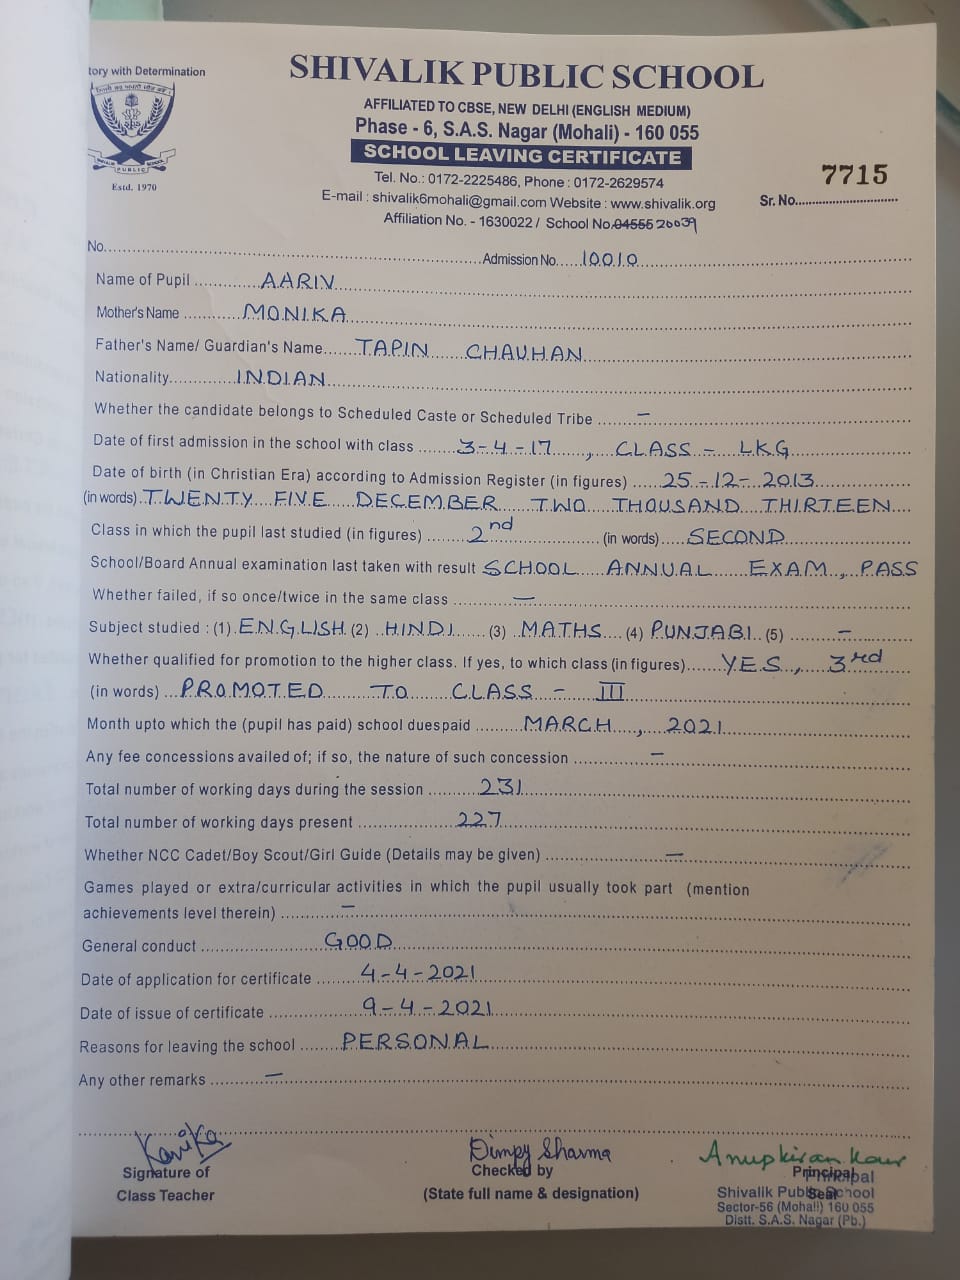 tory with Determination
SHIVALIK PUBLIC SCHOOL
AFFILIATED TO CBSE, NEW DELHI (ENGLISH MEDIUM)
Phase - 6, S.A.S. Nagar (Mohali) - 160 055
SCHOOL LEAVING CERTIFICATE
PUBLIC
Estd. 1970
Tel. No.: 0172-2225486, Phone : 0172-2629574
7715
E-mail : shivalik6mohali@gmail.com Website : www.shivalik.org
Sr. No.
Affiliation No. - 1630022 / School No. 04555 20039
No. Admission No. 10010
Name of Pupil AARIV
Mother's Name MONIKA
Father's Name/ Guardian's Name TAPIN CHAUHAN
Nationality INDIAN
Whether the candidate belongs to Scheduled Caste or Scheduled Tribe –
Date of first admission in the school with class 3-4-17, CLASS - LKG
Date of birth (in Christian Era) according to Admission Register (in figures) 25-12-2013
(in words) TWENTY FIVE DECEMBER TWO THOUSAND THIRTEEN
Class in which the pupil last studied (in figures) 2nd (in words) SECOND
School/Board Annual examination last taken with result SCHOOL ANNUAL EXAM, PASS
Whether failed, if so once/twice in the same class –
Subject studied : (1) ENGLISH (2) HINDI (3) MATHS (4) PUNJABI (5) –
Whether qualified for promotion to the higher class. If yes, to which class (in figures) YES, 3rd
(in words) PROMOTED TO CLASS - III
Month upto which the (pupil has paid) school duespaid MARCH, 2021
Any fee concessions availed of; if so, the nature of such concession –
Total number of working days during the session 231
Total number of working days present 227
Whether NCC Cadet/Boy Scout/Girl Guide (Details may be given) –
Games played or extra/curricular activities in which the pupil usually took part (mention
achievements level therein) –
General conduct GOOD
Date of application for certificate 4-4-2021
Date of issue of certificate 9-4-2021
Reasons for leaving the school PERSONAL
Any other remarks –
Kanika Dimpy Sharma Anupkiran Kaur
Signature of Checked by Principal
Class Teacher (State full name & designation) Seal
Principal
Shivalik Public School
Sector-56 (Mohali) 160 055
Distt. S.A.S. Nagar (Pb.)